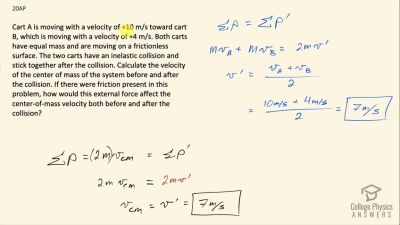 20AP
Cart A is moving with a velocity of +10 m/s toward cart
B, which is moving with a velocity of +4 m/s. Both carts
have equal mass and are moving on a frictionless
surface. The two carts have an inelastic collision and
stick together after the collision. Calculate the velocity
of the center of mass of the system before and after
the collision. If there were friction present in this
problem, how would this external force affect the
center-of-mass velocity both before and after the
collision?
Σp = Σp'
mv_A + mv_B = 2mv'
v' = (v_A + v_B)/2
= (10m/s + 4m/s)/2 = 7m/s
Σp = (2m)v_cm = Σp'
2m v_cm = 2mv'
v_cm = v' = 7m/s
College Physics
ANSWERS